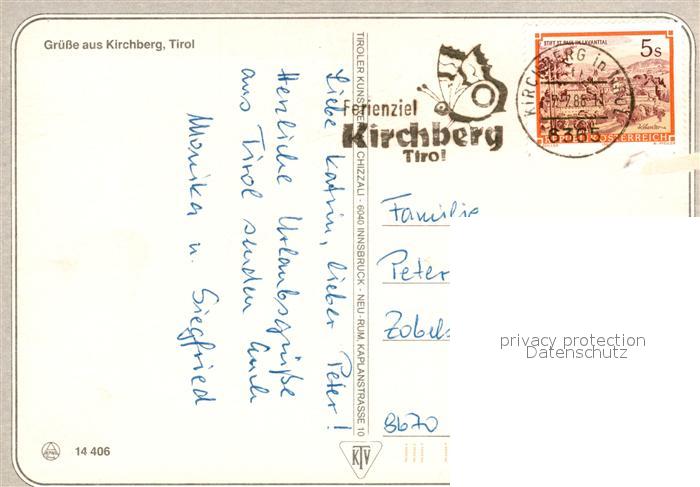 Grüße aus Kirchberg, Tirol
Liebe Katrin, lieber Peter!
Herzliche Urlaubsgrüße
aus Tirol senden Euch
Monika u. Siegfried
TIROLER KUNSTVERLAG CHIZZALI - 6040 INNSBRUCK - NEU-RUM, KAPLANSTRASSE 10
Ferienziel
Kirchberg
Tirol
STIFT ST. PAUL IM LAVANTTAL
5s
REPUBLIK ÖSTERREICH
KIRCHBERG in Tirol
6365
Familie
Peter
Zobels
8670
privacy protection
Datenschutz
14 406
KTV